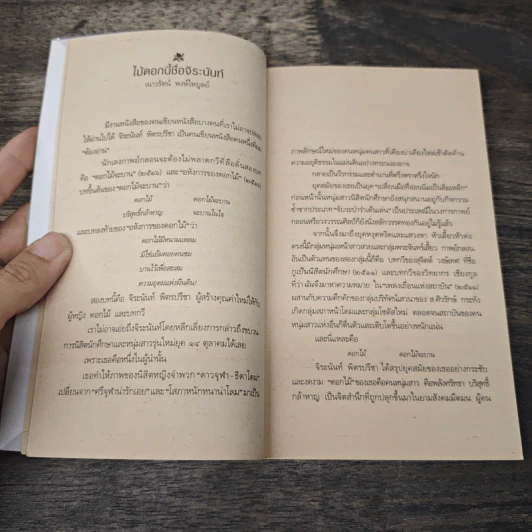 ไม้ดอกนี้ชื่อจิระนันท์
เนาวรัตน์ พงษ์ไพบูลย์
มีงานหนังสือของคนเขียนหนังสือบางคนที่เราไม่อาจปล่อย
ให้ผ่านไปได้ จิระนันท์ พิตรปรีชา เป็นคนเขียนหนังสือคนหนึ่งที่
“ต้องอ่าน”
นักเลงกาพย์กลอนจะต้องไม่พลาดกวีที่ลือลั่นสองบท
คือ “ดอกไม้จะบาน” (๒๕๑๖) และ “อหังการของดอกไม้” (๒๕๑๖)
บทขึ้นต้นของ “ดอกไม้จะบาน” ว่า
ดอกไม้ ดอกไม้จะบาน
บริสุทธิ์กล้าหาญ จะบานในใจ
และบทลงท้ายของ “อหังการของดอกไม้” ว่า
ดอกไม้มีหนามแหลม
มิใช่แย้มคอยคนชม
บานไว้เพื่อสะสม
ความอุดมแห่งผืนดิน!
สองบทนี้คือ จิระนันท์ พิตรปรีชา ผู้สร้างคุณค่าใหม่ให้กับ
ผู้หญิง ดอกไม้ และบทกวี
เราไม่อาจเอ่ยถึงจิระนันท์โดยหลีกเลี่ยงการกล่าวถึงขบวน
การนิสิตนักศึกษาและหนุ่มสาวรุ่นใหม่ยุค ๑๔ ตุลาคมได้เลย
เพราะเธอคือหนึ่งในผู้นำนั้น
เธอทำให้ภาพของนิสิตหญิงจำพวก “ดาวจุฬา - ธิดาโดม”
เปลี่ยนจาก “ศรีจุฬาน่ารักเอย” และ “โสภาหนักหนาน่าโลม” มาเป็น
ภาพลักษณ์ใหม่ของคนหนุ่มคนสาวที่เคียงบ่าเคียงไหล่เข้าคัดค้าน
ความอยุติธรรมในแผ่นดินอย่างทระนงองอาจ
กลายเป็นวีรกรรมและตำนานที่ตรึงตราตรึงใจนัก
ยุคสมัยของเธอเป็นยุค “เปลี่ยนเมื่อที่อ่อนเมื่อเป็นเสื่อเหล็ก”
ก่อนหน้านั้นหนุ่มสาวนิสิตนักศึกษายังสนุกสนานอยู่กับกิจกรรม
ซ้ำซากประเภท “จับระบำรำเต้นเล่น” เป็นประเพณี ในวงการกาพย์
กลอนหรือวงวรรณศิลป์ก็ยังนั่งสลักวรรคทองกันอยู่ไม่รู้แล้ว
จากนั้นจึงมาถึงยุคหงุดหงิดและแสวงหา หัวเลี้ยวหัวต่อ
ตรงนี้มีกลุ่มหนุ่มเหน้าสาวสวยและกลุ่มพระจันทร์เสี้ยว กาพย์กลอน
อันเป็นตัวแทนของสองกลุ่มนี้ก็คือ บทกวีของสุจิตต์ วงษ์เทศ ที่ชื่อ
กูเป็นนิสิตนักศึกษา (๒๕๑๑) และบทกวีของวิทยากร เชียงกูล
ที่ว่า ฉันจึงมาหาความหมาย ใน “เพลงเถื่อนแห่งสถาบัน” (๒๕๑๑)
ผสานกับความคึกคักของกลุ่มปริทัศน์เสวนาของ ส.ศิวรักษ์ กระทั่ง
เกิดกลุ่มสภาหน้าโดมและกลุ่มโซตัสใหม่ ตลอดจนสถาบันของคน
หนุ่มสาวแห่งอื่นก็ตื่นตัวและเติบโตขึ้นอย่างหนักแน่น
และนี่แหละคือ
ดอกไม้ ดอกไม้จะบาน
จิระนันท์ พิตรปรีชา ได้สรุปยุคสมัยของเธออย่างกระชับ
และงดงาม “ดอกไม้” ของเธอคือคนหนุ่มสาว คือพลังศรัทธา บริสุทธิ์
กล้าหาญ เป็นจิตสำนึกที่ถูกปลุกขึ้นมาในยามสังคมมืดมน ผู้คน